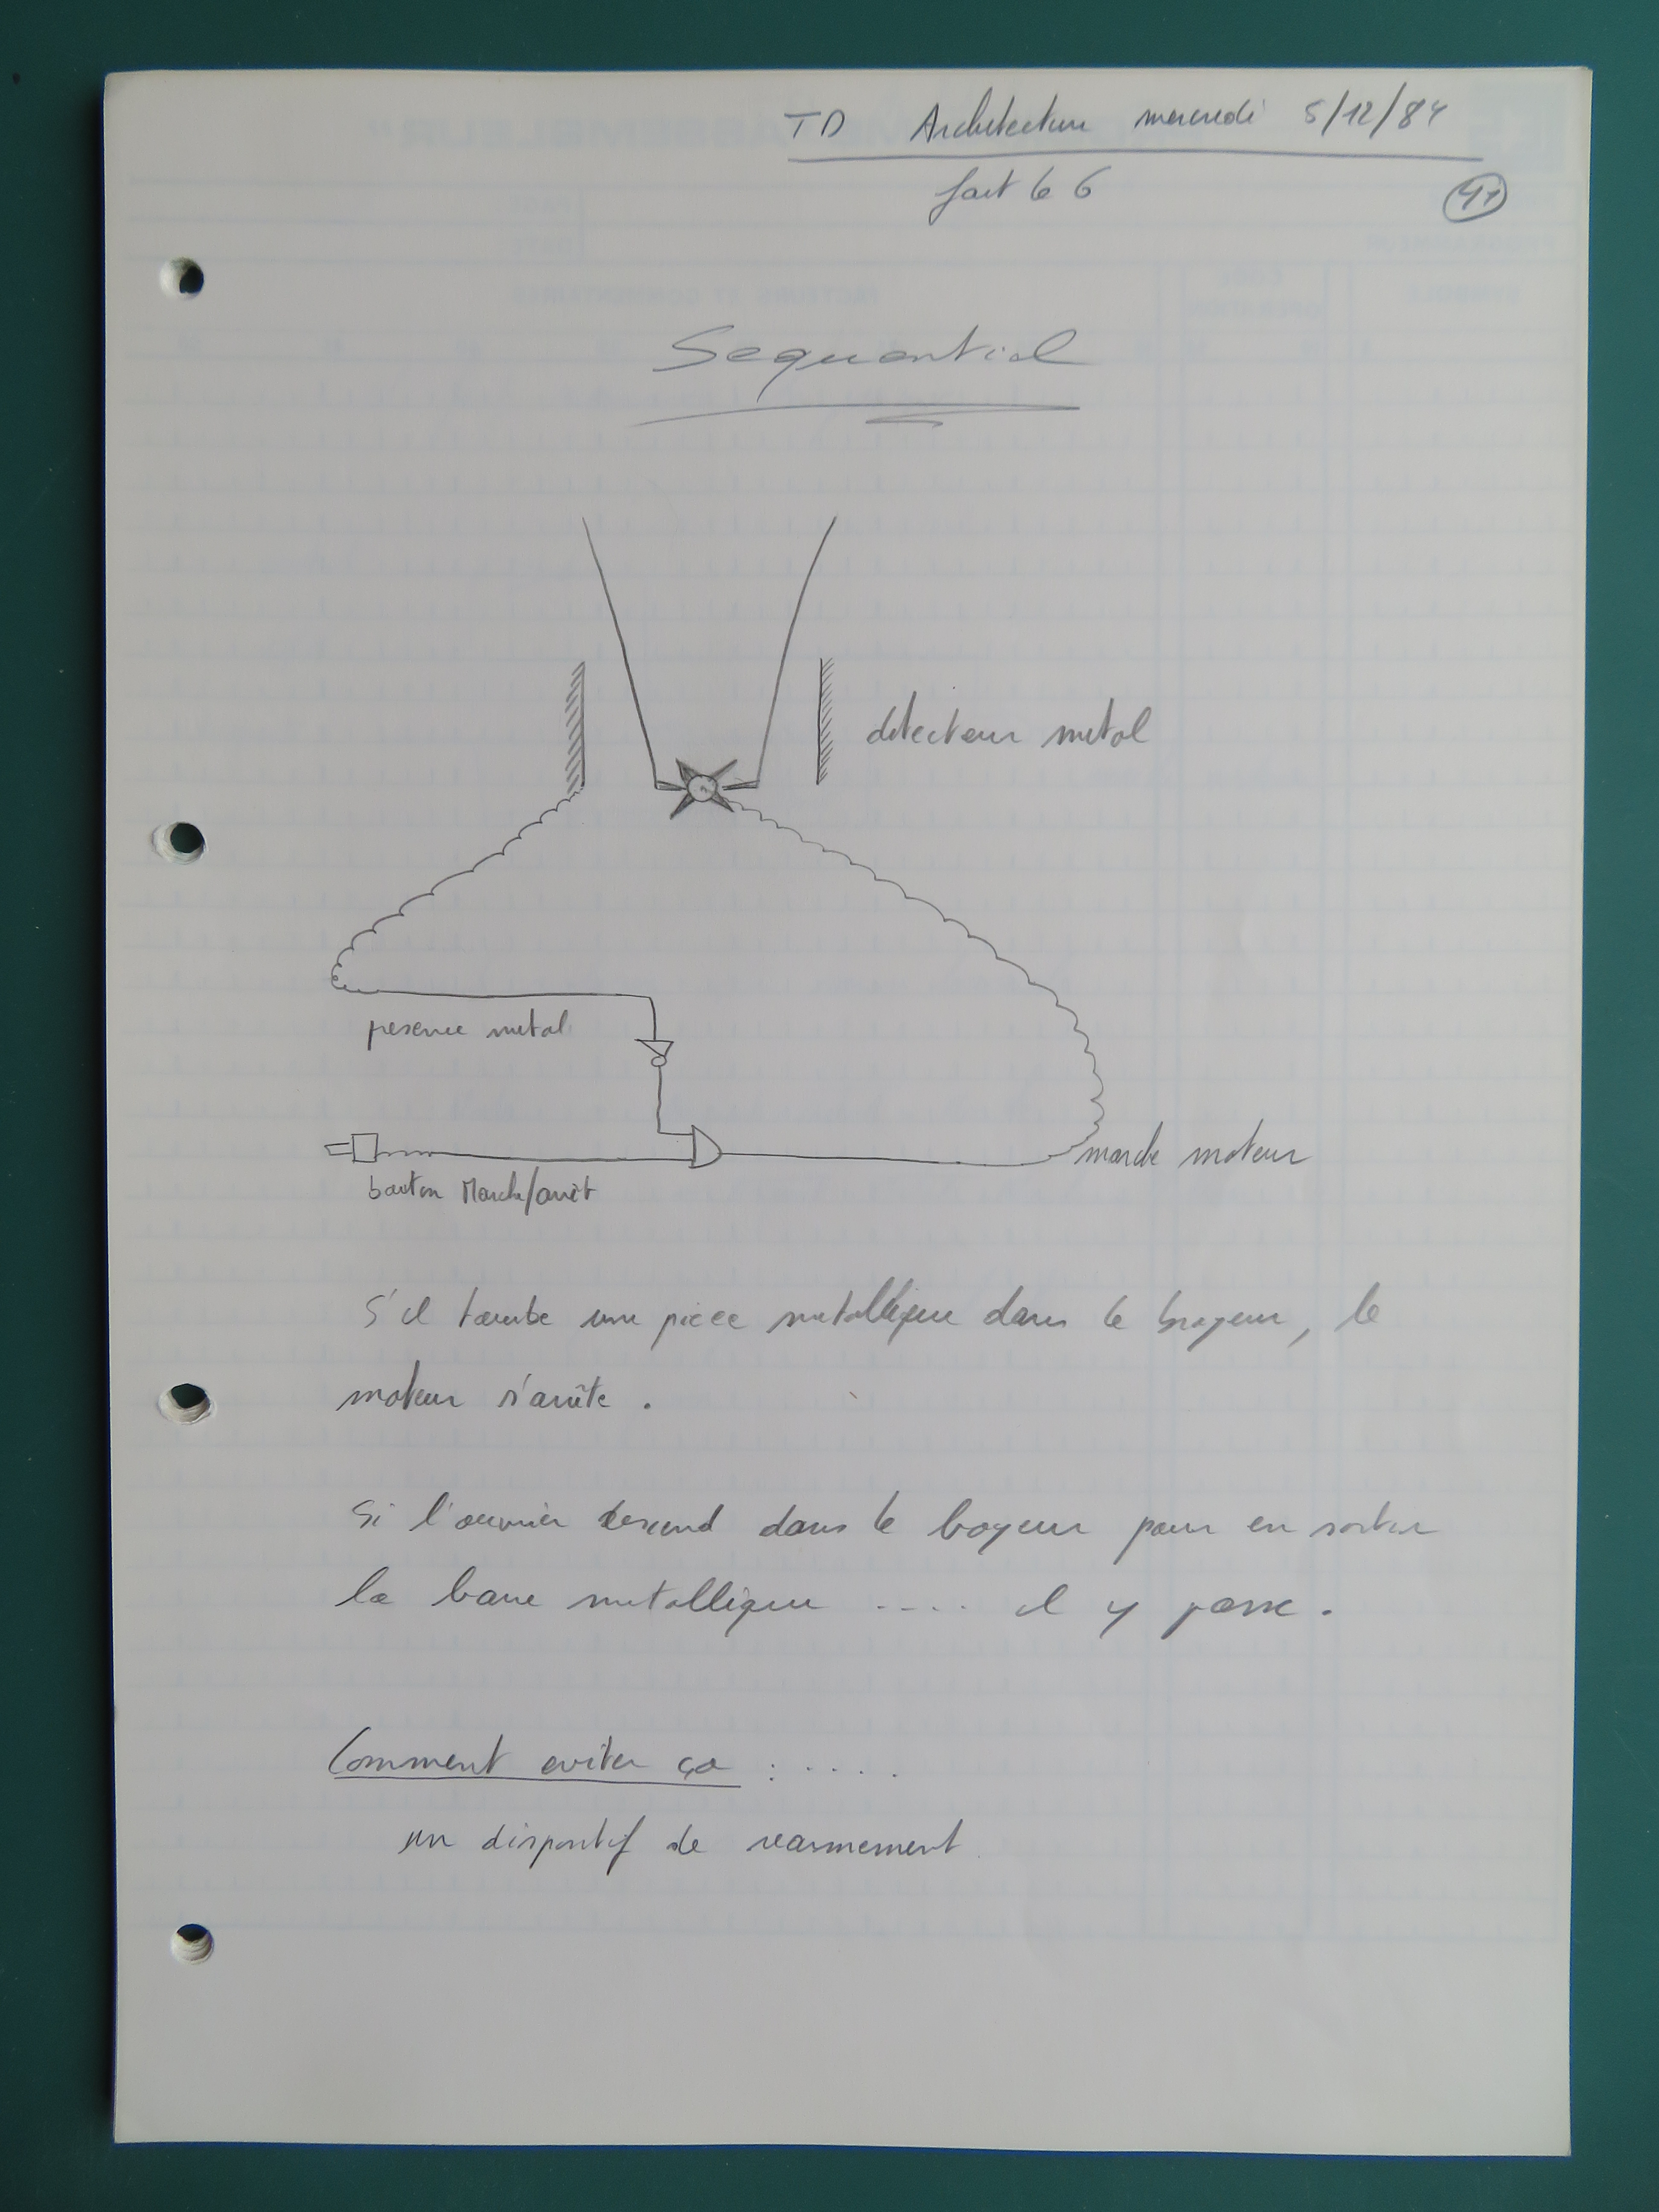 TD Architecture mercredi 5/12/84
fait le 6
41
Sequentiel
detecteur metal
presence metal
bouton Marche/arrêt
marche moteur
S'il tombe une piece metallique dans le broyeur, le
moteur s'arrête.
Si l'ouvrier descend dans le broyeur pour en sortir
la barre metallique .... il y passe.
Comment eviter ça : ....
un dispositif de rearmement